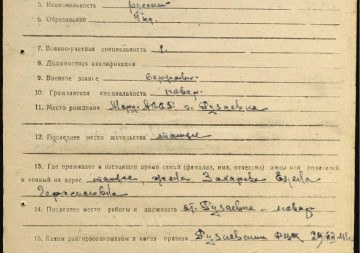 5. Национальность русский
6. Образование 4 кл.
7. Военно-учетная специальность 1.
8. Должностная квалификация
9. Военное звание сержант
10. Гражданская специальность повар
11. Место рождения Морд. АССР г. Рузаевка
12. Последнее место жительства там же
13. Где проживает в настоящее время семья (фамилия, имя, отчество) жены или родителей
и точный их адрес там же, жена Захарова Елена
Герасимовна
14. Последнее место работы и должность ст. Рузаевка - повар
15. Каким райгорвоенкоматом и когда призван Рузаевский